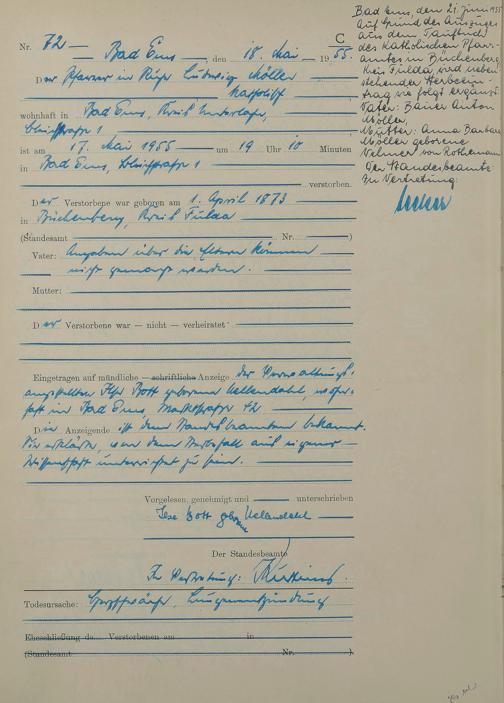 C
Nr. 72
Bad Ems, den 18. Mai 1955.
Der Pfarrer in Ruhe Ludwig Möller
katholisch
wohnhaft in Bad Ems, Kreis Unterlahn,
1
ist am 17. Mai 1955 um 19 Uhr 10 Minuten
in Bad Ems, 1
verstorben.
Der Verstorbene war geboren am 1. April 1873
in Büchenberg, Kreis Fulda
(Standesamt Nr. )
Vater: Angaben über die Eltern können
nicht gemacht werden.
Mutter:
Der Verstorbene war — nicht — verheiratet
Eingetragen auf mündliche — schriftliche Anzeige der Verwaltungs-
angestellten Ilse Bott geborene Uellendahl, wohn-
haft in Bad Ems, Marktstraße 42
Die Anzeigende ist dem Standesbeamten bekannt.
Sie erklärte, von dem Sterbefall aus eigener
Wissenschaft unterrichtet zu sein.
Vorgelesen, genehmigt und unterschrieben
Ilse Bott geborene Uellendahl
Der Standesbeamte
In Vertretung:
Todesursache: Herzschwäche, Lungenentzündung
Eheschließung de Verstorbenen am in
(Standesamt Nr. ).
Bad Ems, den 21. Juni 1955
Auf Grund des Auszuges
aus dem Taufbuch
des Katholischen Pfarr-
amtes in Büchenberg
Kreis Fulda wird neben-
stehender Sterbeein-
trag wie folgt ergänzt:
Vater: Bauer Anton
Möller,
Mutter: Anna Barbara
Möller geborene
von Rothemann
Der Standesbeamte
In Vertretung: